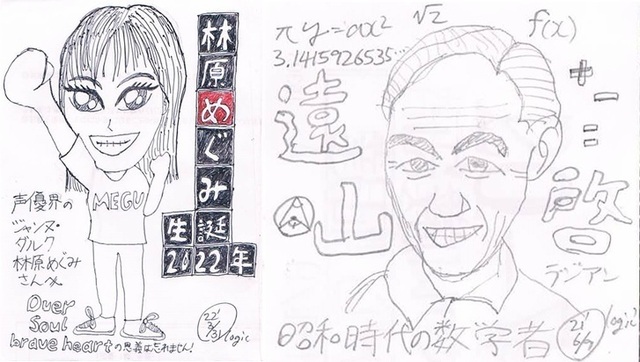 林原めぐみ
生誕
2022年
MEGU
声優界の
ジャンヌ・
ダルク
林原めぐみ
さん
Over
Soul
brave heartの恩義は忘れません!
22'
logic
π y=ax² √2 f(x)
3.1415926535…
遠山
啓
ラジアン
昭和時代の数学者
21'
logic